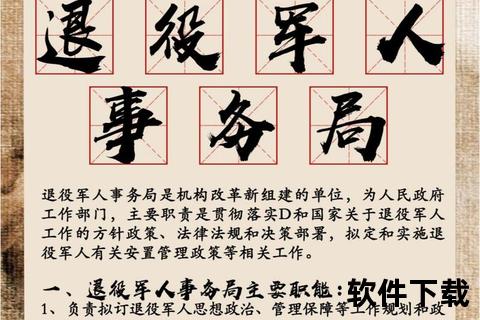 退役军人
事务局
退役军人事务局是机构改革新组建的单位，为人民政府
工作部门，主要职责是贯彻落实D和国家关于退役军人
工作的方针政策、法律法规和决策部署，拟定和实施退
役军人有关安置管理政策等相关工作。
一、退役军人事务局主要职能：
软件下载
1、负责拟订退役军人思想政治、管理保障等工作规划和政